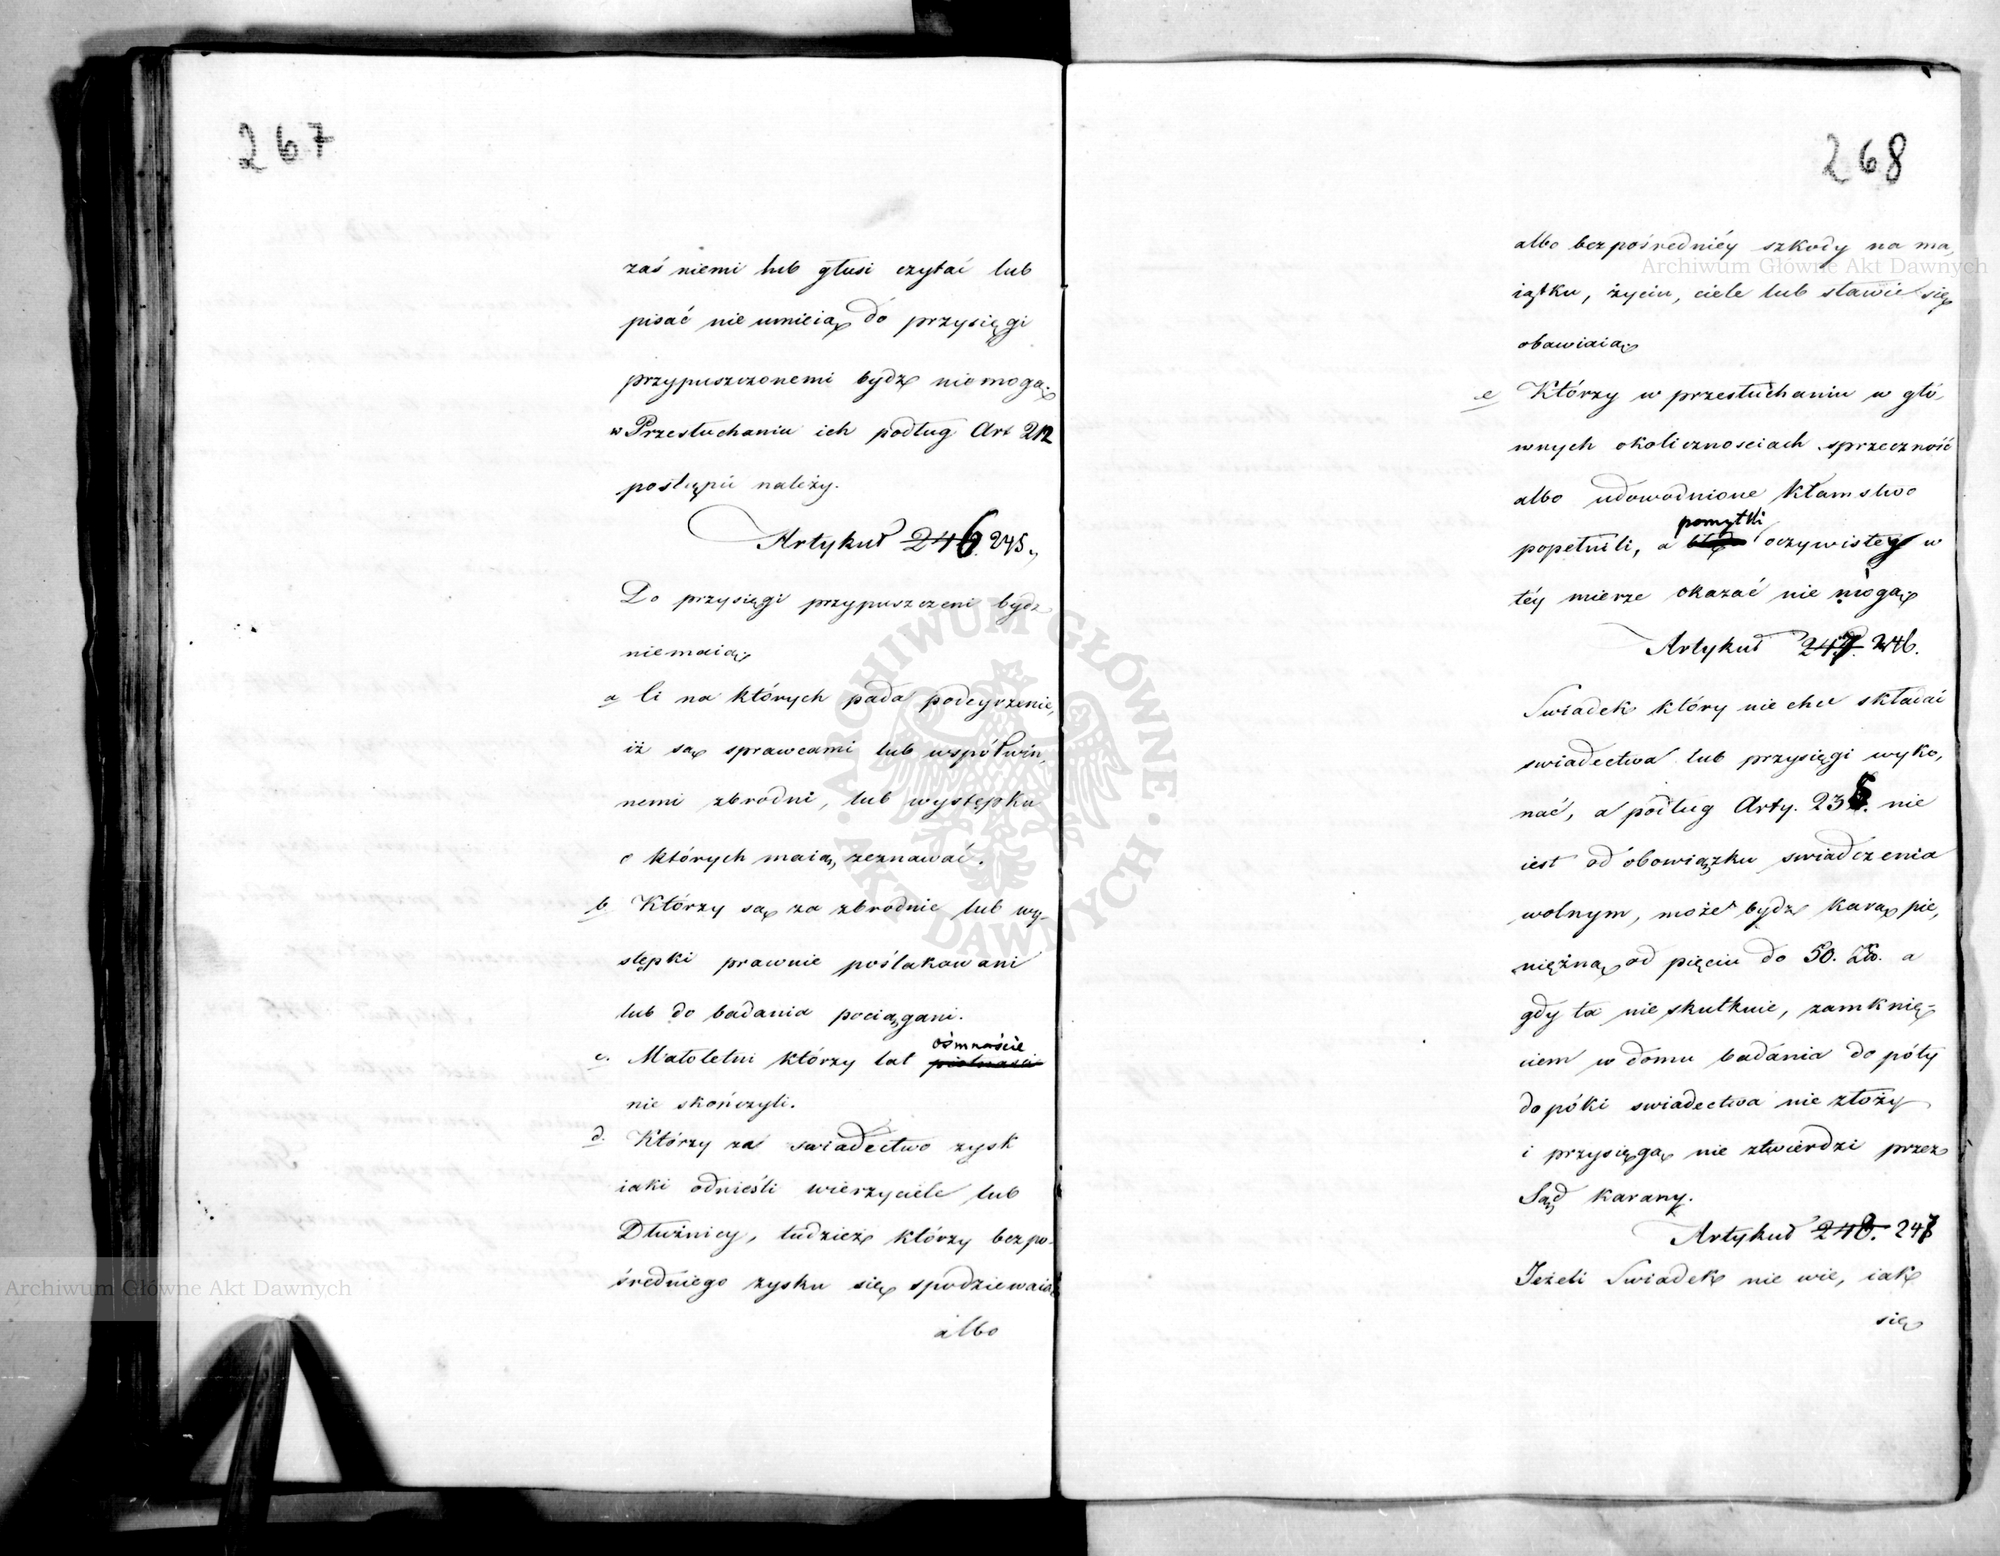 267
zaś niemi lub głusi czytać lub
pisać nie umieią do przysięgi
przypuszczonemi bydź niemogą.
w Przesłuchaniu ich podług Art 212
postąpić należy.
Artykuł 246. 245.
Do przysięgi przypuszczeni bydź
niemaią.
a Ci na których pada podeyrzenie,
iż są sprawcami lub współwin,
nemi zbrodni, lub występku
o których maią zeznawać.
b Którzy są za zbrodnie lub wy-
stępki prawnie poślakowani
lub do badania pociągani.
ośmnaście
c. Małoletni którzy lat piętnaści
nie skończyli.
d. Którzy za swiadectwo zysk
iaki odnieśli wierzyciele lub
Dłużnicy, tudzież którzy bezpo-
średniego zysku się spodziewaią
albo
268
albo bezpośredniéy szkody na ma,
iątku, życiu, ciele lub sławie się
obawiaią.
e Którzy w przesłuchaniu w głó,
wnych okolicznosciach sprzeczność
albo udowodnione kłamstwo
pomyłki
popełnili, a oczywistey w
téy mierze okazać nie mogą.
Artykuł 247. 246.
Swiadek który nie chce składać
swiadectwa lub przysięgi wyko,
nać, a podług Arty. 235. nie
iest od obowiązku swiadczenia
wolnym, może bydź karą pie,
niężną od pięciu do 50. Zło. a
gdy ta nie skutkuie, zamknię-
ciem w domu badania do póty
do póki swiadectwa nie złoży
i przysięgą nie ztwierdzi przez
Sąd karany.
Artykuł 248. 247
Jeżeli Swiadek nie wie, iak
się
Archiwum Główne Akt Dawnych
Archiwum Główne Akt Dawnych
ARCHIWUM GŁÓWNE · AKT DAWNYCH ·